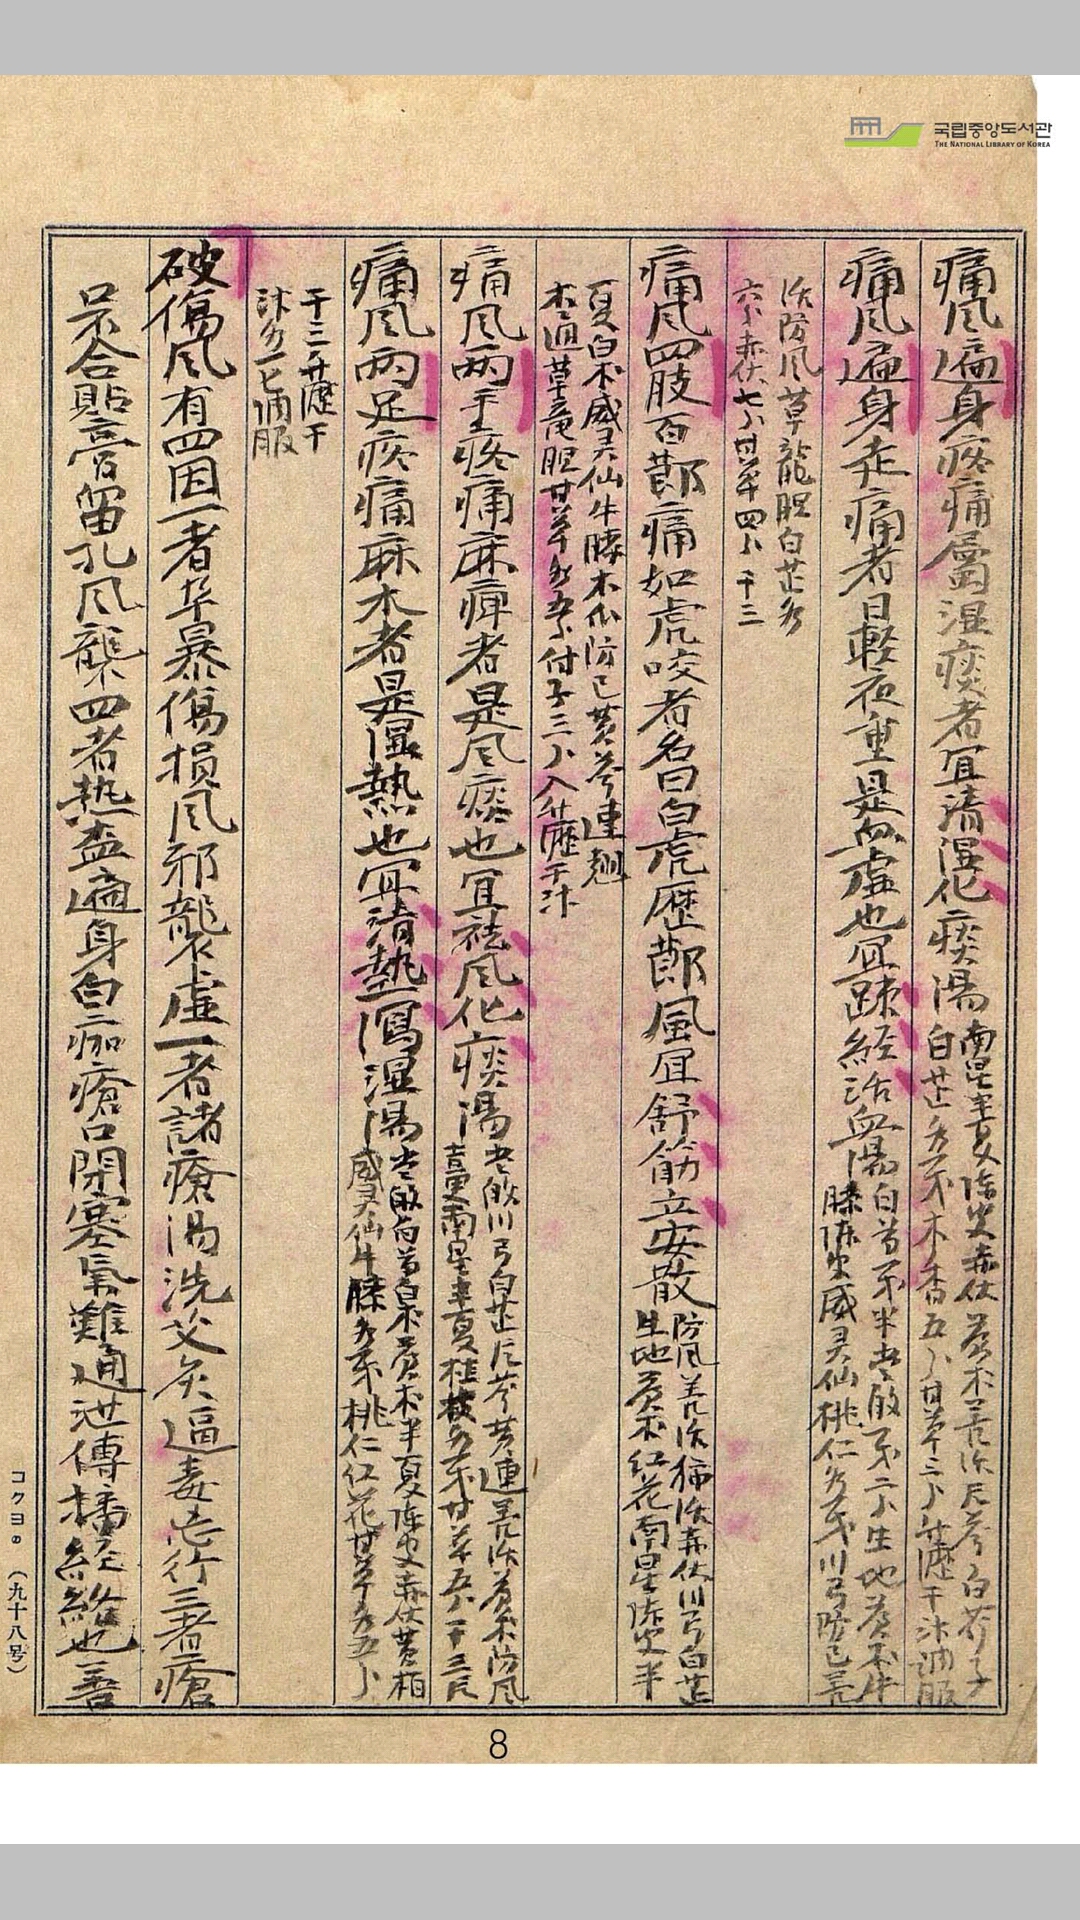 국립중앙도서관
THE NATIONAL LIBRARY OF KOREA
痛風遍身疼痛屬湿痰者宜清湿化痰湯 南星半夏陳皮赤伏蒼朮羌活片芩白芥子
白芷各一戔木香五卜甘草三卜 姜汁調服
痛風遍身走痛者日輕夜重是血虛也宜踈經活血湯 白芍一戔半 二卜生地蒼朮牛
膝陳皮威灵仙桃仁各一戔川弓防己羌
活防風草龍胆白芷各
六卜赤伏七卜甘草四卜干三
痛風四肢百節痛如虎咬者名曰白虎歷節風宜舒筋立安散 防風羌活独活赤伏川弓白芷
生地蒼朮紅花南星陳皮半
夏白朮威灵仙牛膝木瓜防己黄芩連翹
木通草龍胆甘草各五卜付子三卜入 干汁
痛風两手疼痛麻痺者是風痰也宜祛風化痰湯 川弓白芷片芩黄連羌活蒼朮防風
南星半夏桂枝各一戔甘草五卜干三片
痛風两足疼痛麻木者是湿熱也宜清熱瀉湿湯 白芍白朮蒼朮半夏陳皮赤伏黄柏
威灵仙牛膝各一戔桃仁红花甘草各五卜
干三 干
汁各一匕調服
破傷風有四因一者卒暴傷損風邪襲虛一者諸療湯洗艾灸逼毒 行三者瘡
口不合貼膏留孔風襲四者熱盃遍身白痂瘡口閉塞氣難通泄傳播經絡也善
コクヨの （九十八号）
8